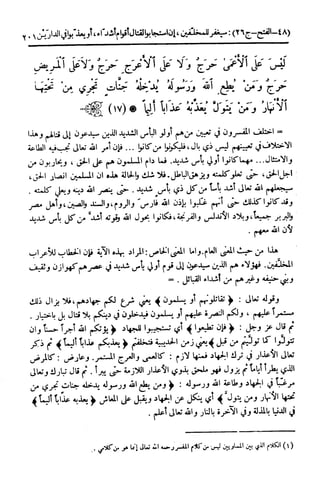 (٤٨-الفتح-ج٢٦): سيغفر للمخلفين، إن استجابوا لقتال أقوام أشداء، أو يعذبوا في الدارين ٢٠١
لَيْسَ عَلَى الْأَعْمَىٰ حَرَجٌ وَلَا عَلَى الْأَعْرَجِ حَرَجٌ وَلَا عَلَى الْمَرِيضِ
حَرَجٌ وَمَنْ يُطِعِ اللَّهَ وَرَسُولَهُ يُدْخِلْهُ جَنَّاتٍ تَجْرِي مِنْ تَحْتِهَا
الْأَنْهَارُ وَمَنْ يَتَوَلَّ يُعَذِّبْهُ عَذَابًا أَلِيمًا ﴿١٧﴾
= اختلف المفسرون في تعيين من هم أولو البأس الشديد الذين سيدعون إلى قتالهم وهذا
الاختلاف في تعيينهم ليس ذي بال، فليكونوا من كانوا ... فإن أمر الله تعالى تجب فيه الطاعة
والامتثال... مهما كانوا أولي بأس شديد. فما دام المسلمون هم على الحق، ويحاربون من
أجل الحق، حتى تعلو كلمته ويزهق الباطل. فلا شك والحالة هذه أن المسلمين أنصار الحق،
سيجعلهم الله تعالى أشد بأساً من كل ذي بأس شديد. حتى ينصر الله دينه ويعلي كلمته .
وقد كانوا كذلك حتى أنهم غلبوا بإذن الله فارس والروم، والسند والصين، وأهل مصر
والبربر جميعاً، وبلاد الأندلس والفرنجة، فكانوا بحول الله وقوته أشد من كل بأس شديد
لأن الله معهم .
هذا من حيث المعنى العام. وأما المعنى الخاص: المراد بهذه الآية فإن الخطاب للأعراب
المخلفين. فهؤلاء هم الذين سيدعون إلى قوم أولي بأس شديد في عصرهم كهوازن وثقيف
وبني حنيفة وغيرهم من أشداء القبائل . =
وقوله تعالى : ﴿ تقاتلونهم أو يسلمون ﴾ يعني شرع لكم جهادهم، فلا يزال ذلك
مستمراً عليهم ، ولكم النصرة عليهم أو يسلمون فيدخلون في دينكم بلا قتال بل باختيار .
ثم قال عز وجل : ﴿ فإن تطيعوا ﴾ أي تستجيبوا للجهاد ﴿ يؤتكم الله أجراً حسناً وإن
تتولوا كما توليتم من قبل ﴾ يعني زمن الحديبية فتخلفتم ﴿ يعذبكم عذاباً أليماً ﴾ ثم ذكر
تعالى الأعذار في ترك الجهاد فمنها لازم : كالعمى والعرج المستمر . وعارض : كالمرض
الذي يطرأ أياماً ثم يزول فهو ملحق بذوي الأعذار اللازمة حتى يبرأ . ثم قال تبارك وتعالى
مرغباً في الجهاد وطاعة الله ورسوله : ﴿ ومن يطع الله ورسوله يدخله جنات تجري من
تحتها الأنهار ومن يتول ﴾ أي ينكل عن الجهاد ويقبل على المعاش ﴿ يعذبه عذاباً أليماً ﴾
في الدنيا بالمذلة وفي الآخرة بالنار والله تعالى أعلم .
(١) الكلام الذي بين المساويين ليس من كلام المفسر رحمه الله تعالى إنما هو من كلامي .